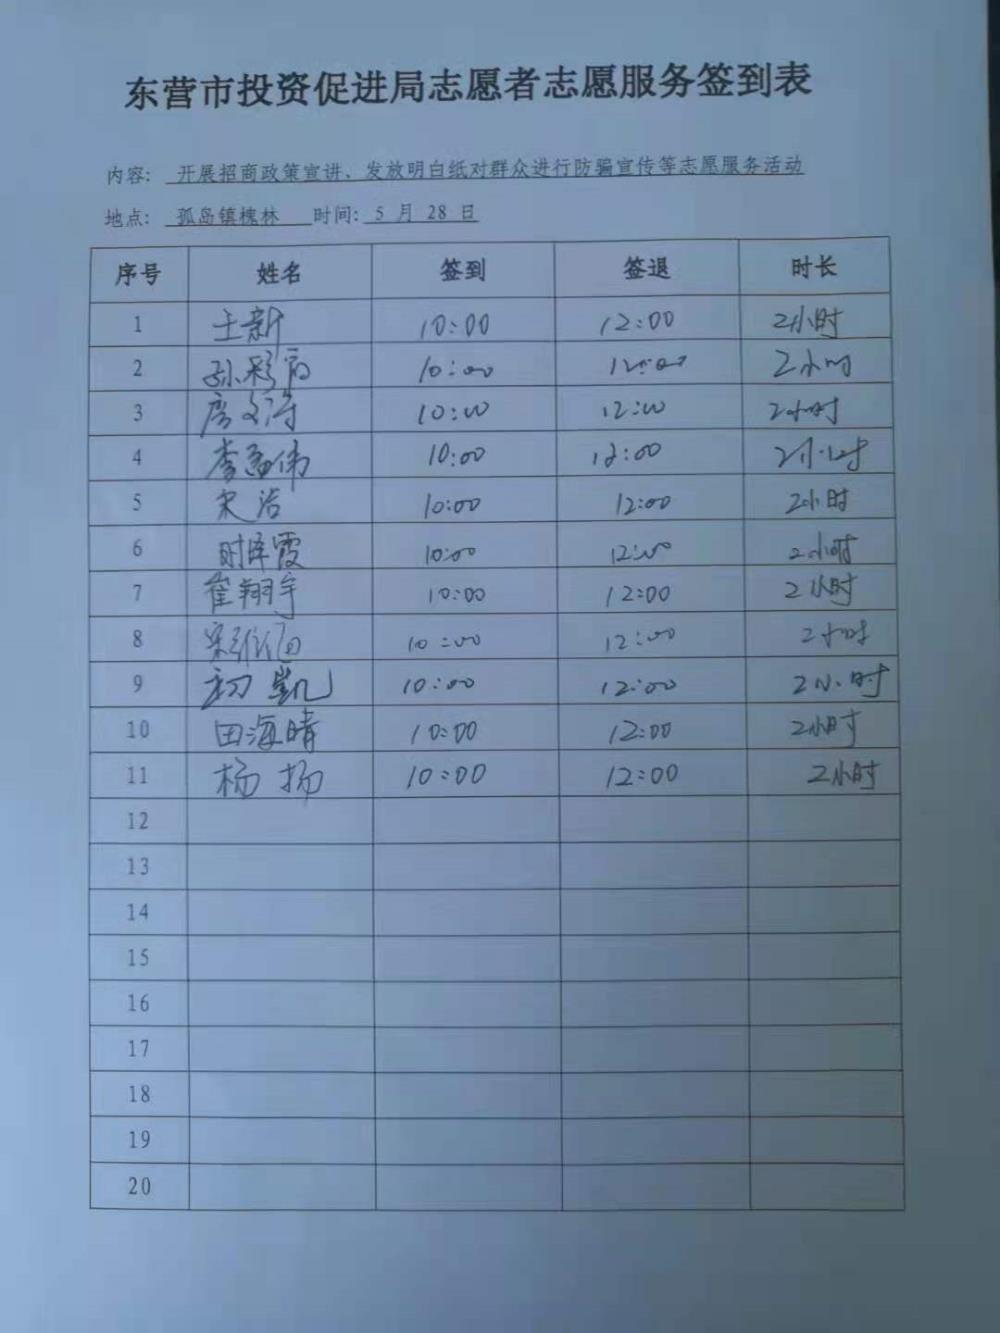 东营市投资促进局志愿者志愿服务签到表
内容: 开展招商政策宣讲、发放明白纸对群众进行防骗宣传等志愿服务活动
地点: 孤岛镇槐林 时间: 5 月 28 日
序号 姓名 签到 签退 时长
1 王新 10:00 12:00 2小时
2 孙彩 10:00 12:00 2小时
3 房文涛 10:00 12:00 2小时
4 李孟伟 10:00 12:00 2小时
5 宋洁 10:00 12:00 2小时
6 时泽霞 10:00 12:00 2小时
7 崔翔宇 10:00 12:00 2小时
8 10:00 12:00 2小时
9 初凯 10:00 12:00 2小时
10 田海晴 10:00 12:00 2小时
11 杨扬 10:00 12:00 2小时
12
13
14
15
16
17
18
19
20